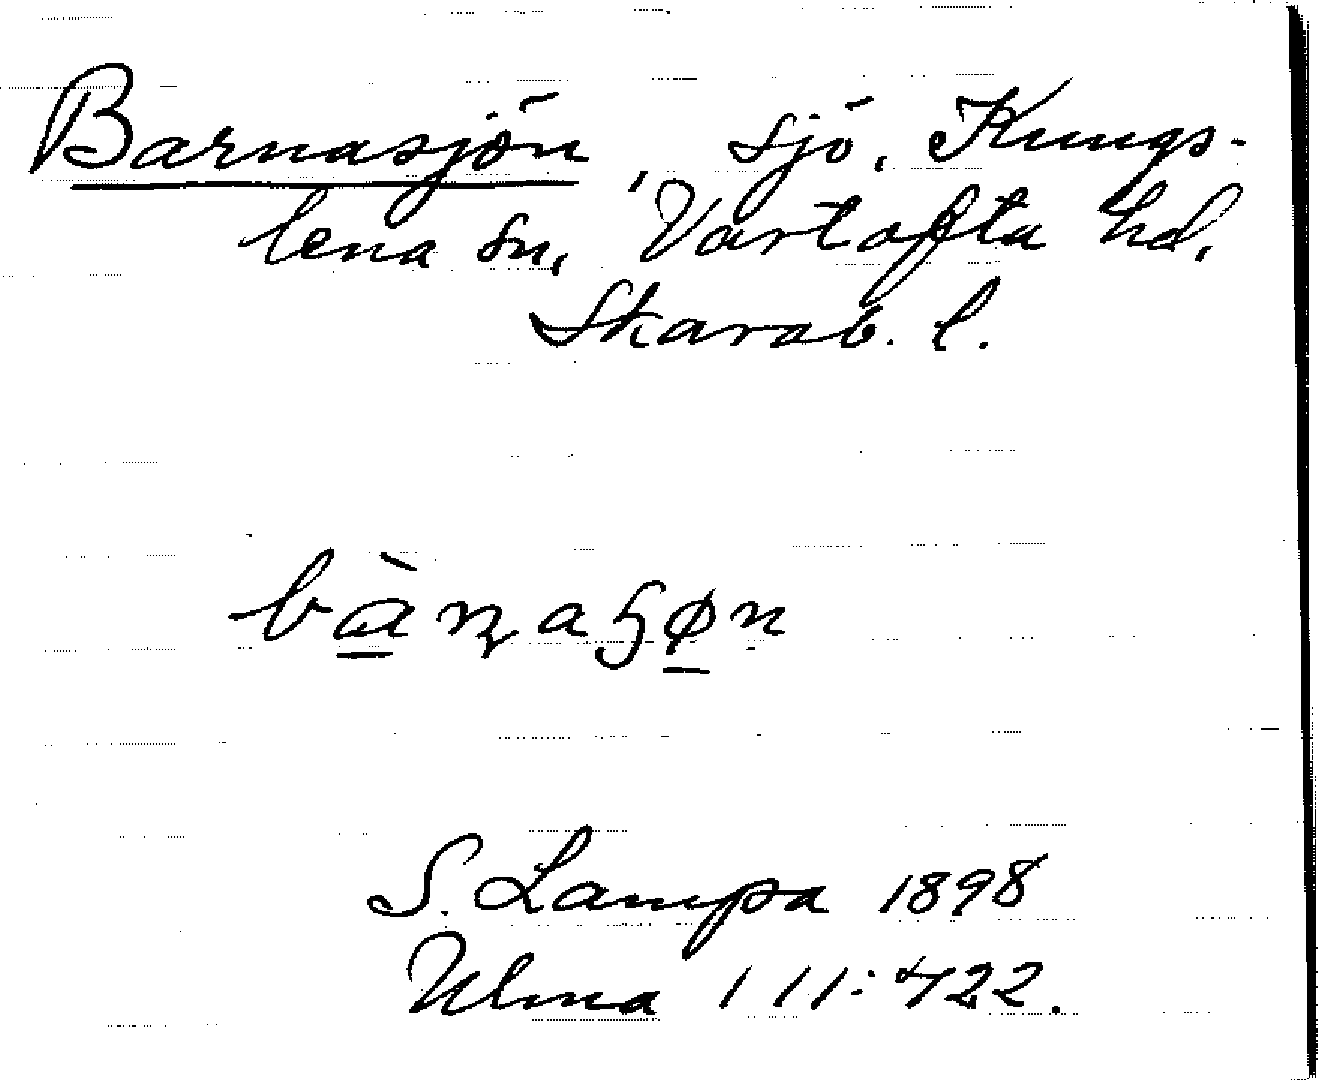 Barnasjön, sjö, Kungs-
lena sn, Vartofta hd,
Skarab. l.
bàɳaɧøn
S. Lampa 1898
Ulma 111:422.